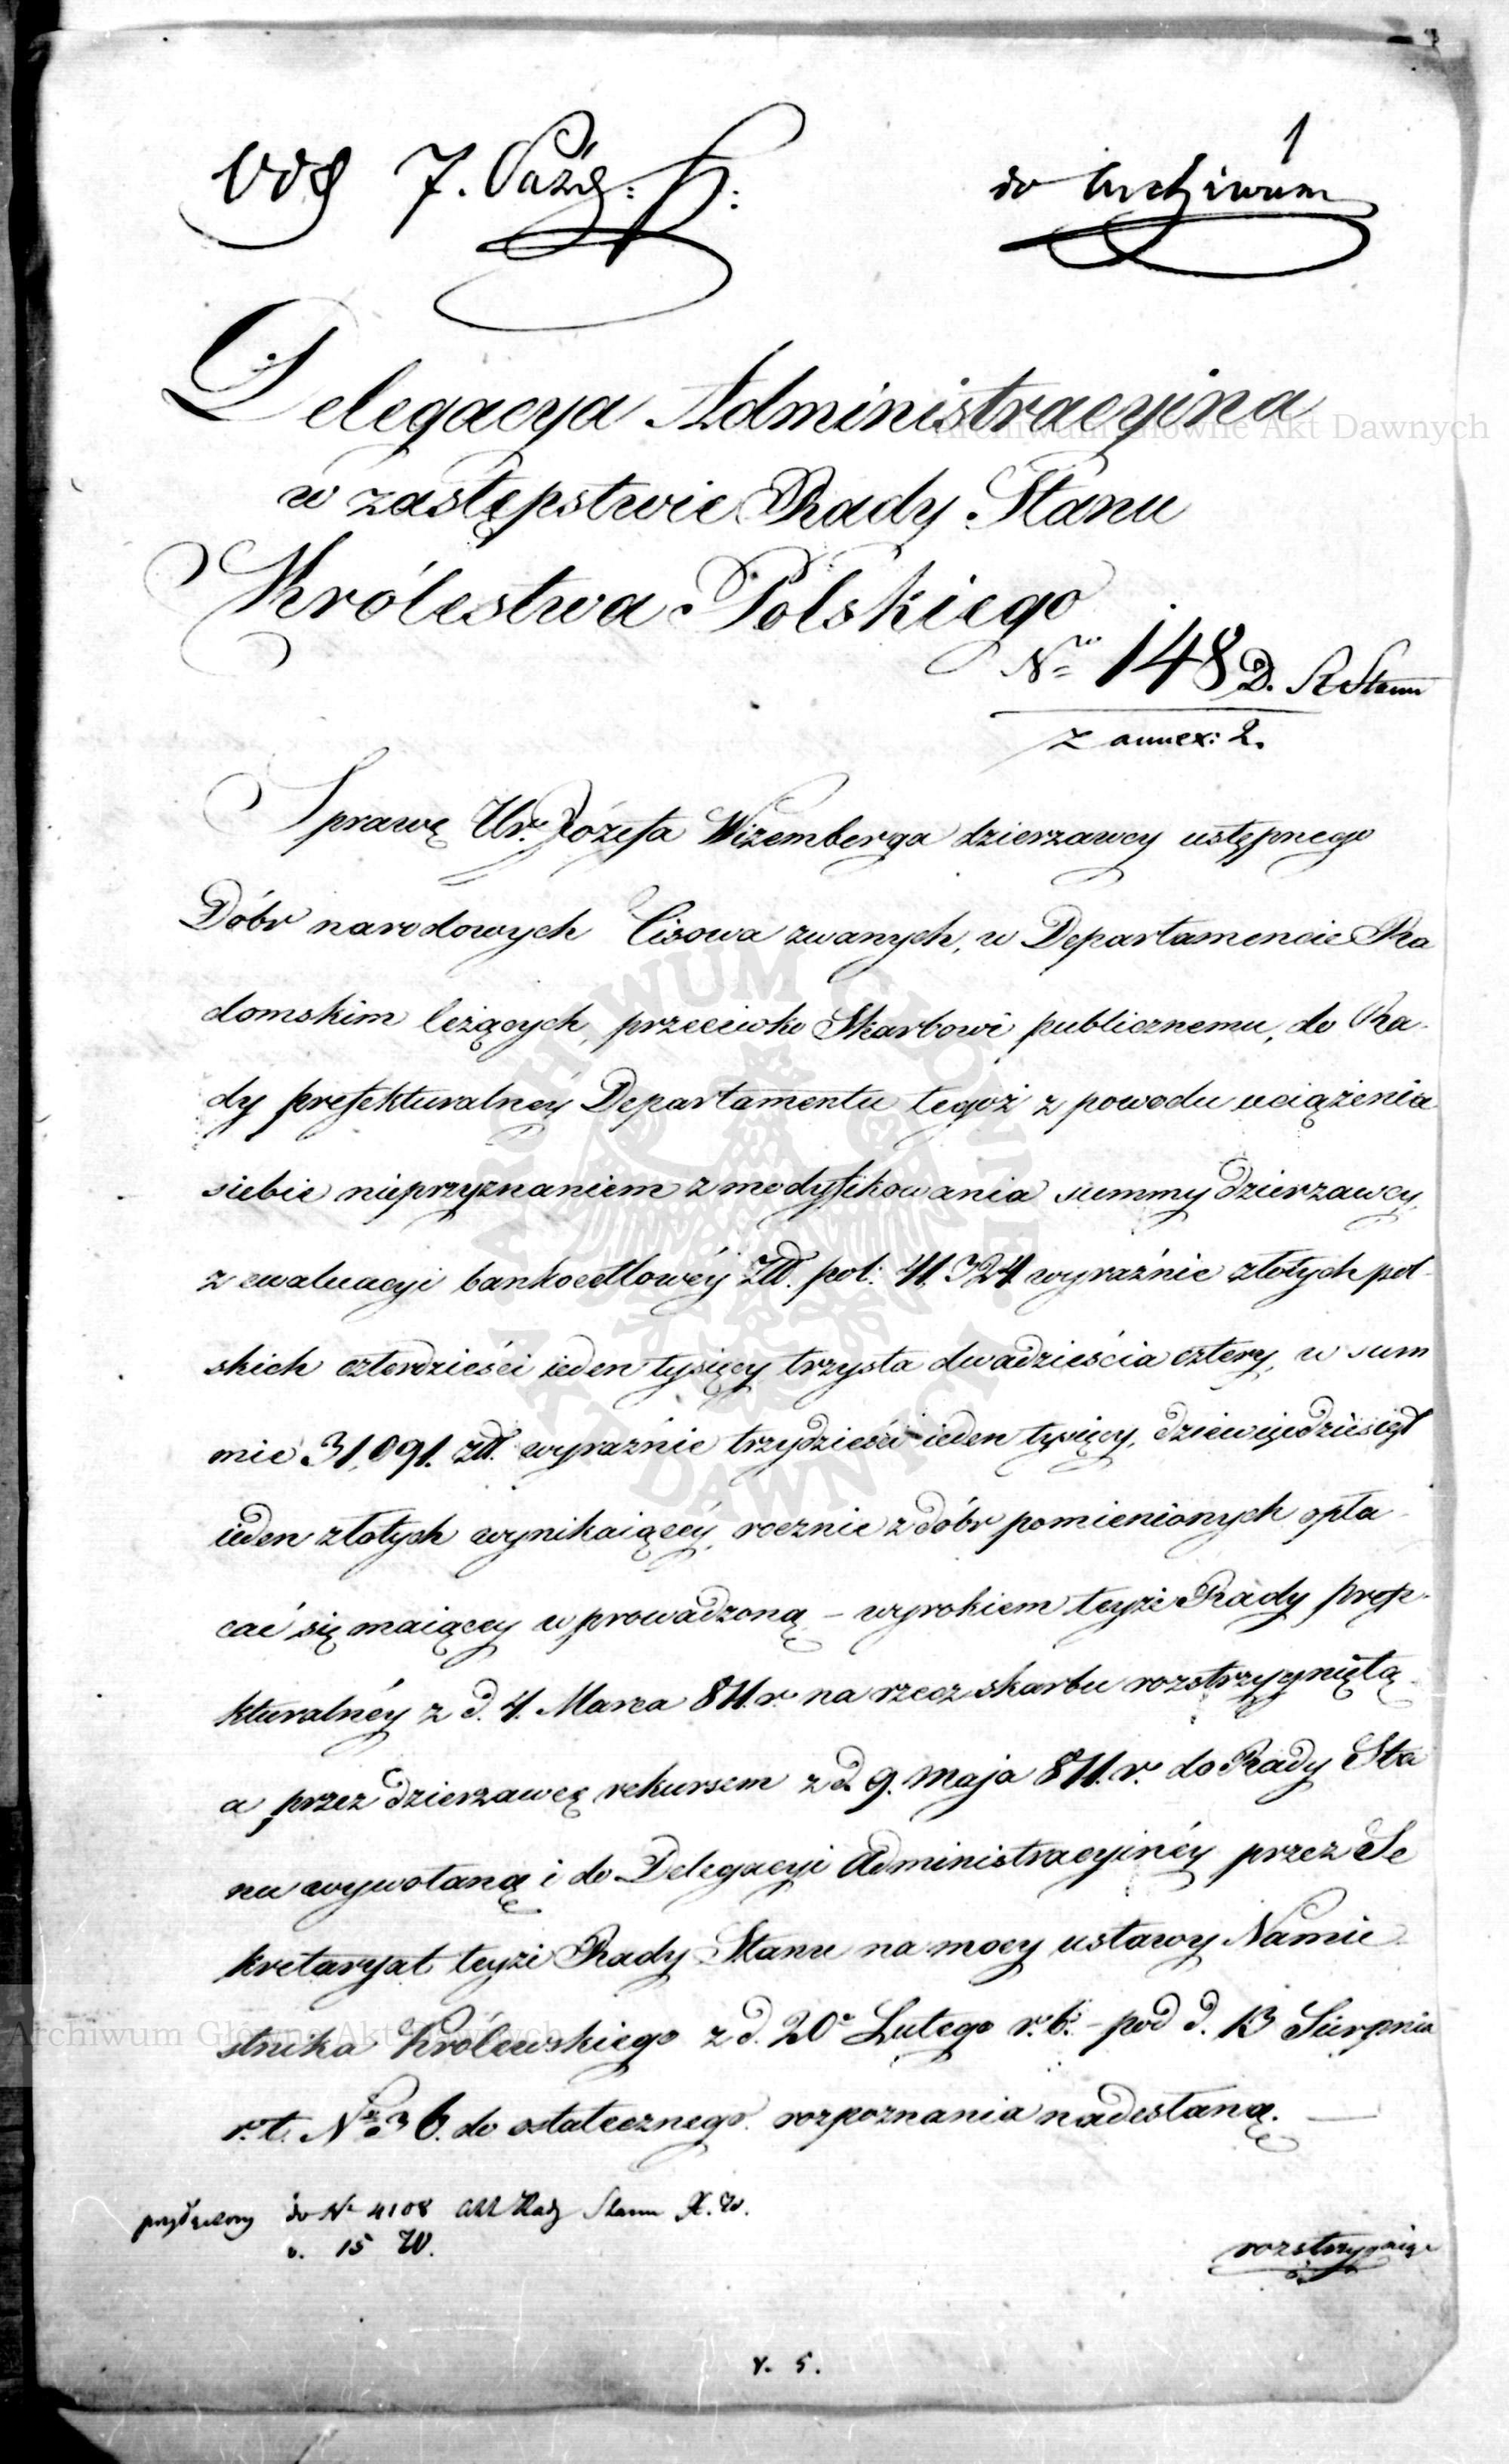 7. Paźdz:
1
do Archiwum
Delegacya Administracyina
w zastępstwie Rady Stanu
Królestwa Polskiego
Nro 148 D. R Stanu
z annex: 2.
Sprawę Ur. Józefa Wizemberga dzierzawcy ustępnego
Dóbr narodowych Cisowa zwanych, w Departamencie Ra
domskim leżących, przeciwko Skarbowi publicznemu, do Ra-
dy prefekturalnéy Departamentu tegoż z powodu uciążenia
siebie nieprzyznaniem zmodyfikowania summy dzierzawcy,
z ewaluacyi bankocetlowéy Złł. pol: 41,324 wyraźnie złotych pol-
skich czterdzieści ieden tysięcy trzysta dwadzieścia cztery, w sum
mie 31,091. złł. wyraźnie trzydzieści ieden tysięcy, dziewięćdziesiąt
ieden złotych wynikaiącéy, rocznie z dóbr pomienionych opła-
cać się maiącey wprowadzoną – wyrokiem teyże Rady prefe-
kturalnéy z d. 4. Marca 811. r. na rzecz skarbu rozstrzygniętą
a przez dzierzawcę rekursem z d. 9. Maja 811. r. do Rady Sta
nu wywołaną i do Delegacyi Administracyinéy przez Se
kretaryat teyże Rady Stanu na mocy ustawy Namie
stnika Królewskiego z d. 20o Lutego r. b. – pod d. 13 Sierpnia
r. t. Nro 36. do ostatecznego rozpoznania nadesłaną. —
przyłączony do Nr 4108 akt Rady Stanu X. W.
v. 15 W.
rozstrzygaiąc
v. 5.
Archiwum Główne Akt Dawnych
ARCHIWUM GŁÓWNE AKT DAWNYCH
Archiwum Główne Akt Dawnych